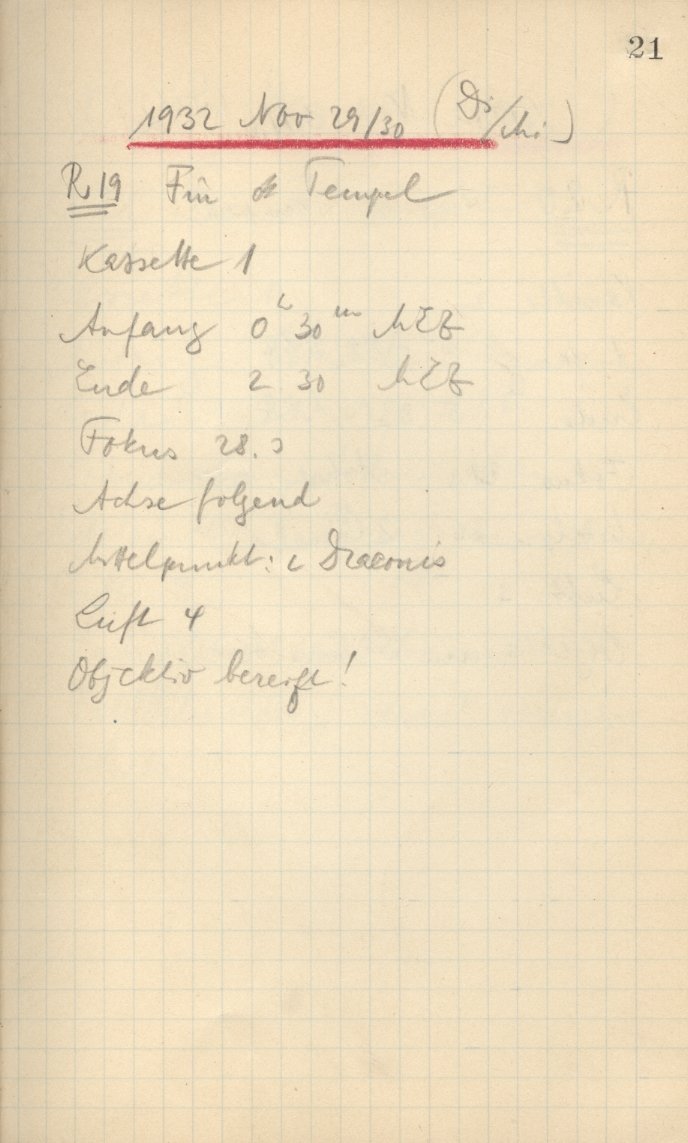 21
1932 Nov 29/30 (Di/Mi)
R 19 Für Tempel
Kassette 1
Anfang 0h 30m MEZ
Ende 2 30 MEZ
Fokus 28.5
Achse folgend
Mittelpunkt: ι Draconis
Luft 4
Objektiv bereift!